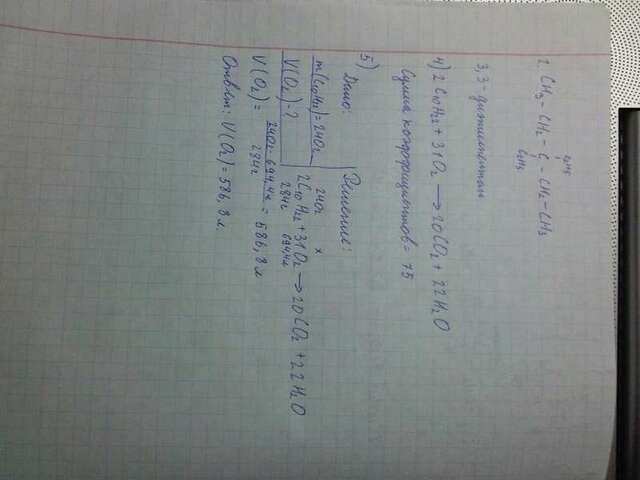 2. CH3 - CH2 - C - CH2 - CH3
C2H5
C2H5
3,3 - диэтилпентан
4) 2C10H22 + 31O2 → 20CO2 + 22H2O
Сумма коэффициентов = 75
5) Дано:
Решение:
m(C10H22) = 240г
V(O2) - ?
240г x
2C10H22 + 31O2 → 20CO2 + 22H2O
284г 694,4л
V(O2) = 240г · 694,4л / 284г = 586,8 л
Ответ: V(O2) = 586,8 л